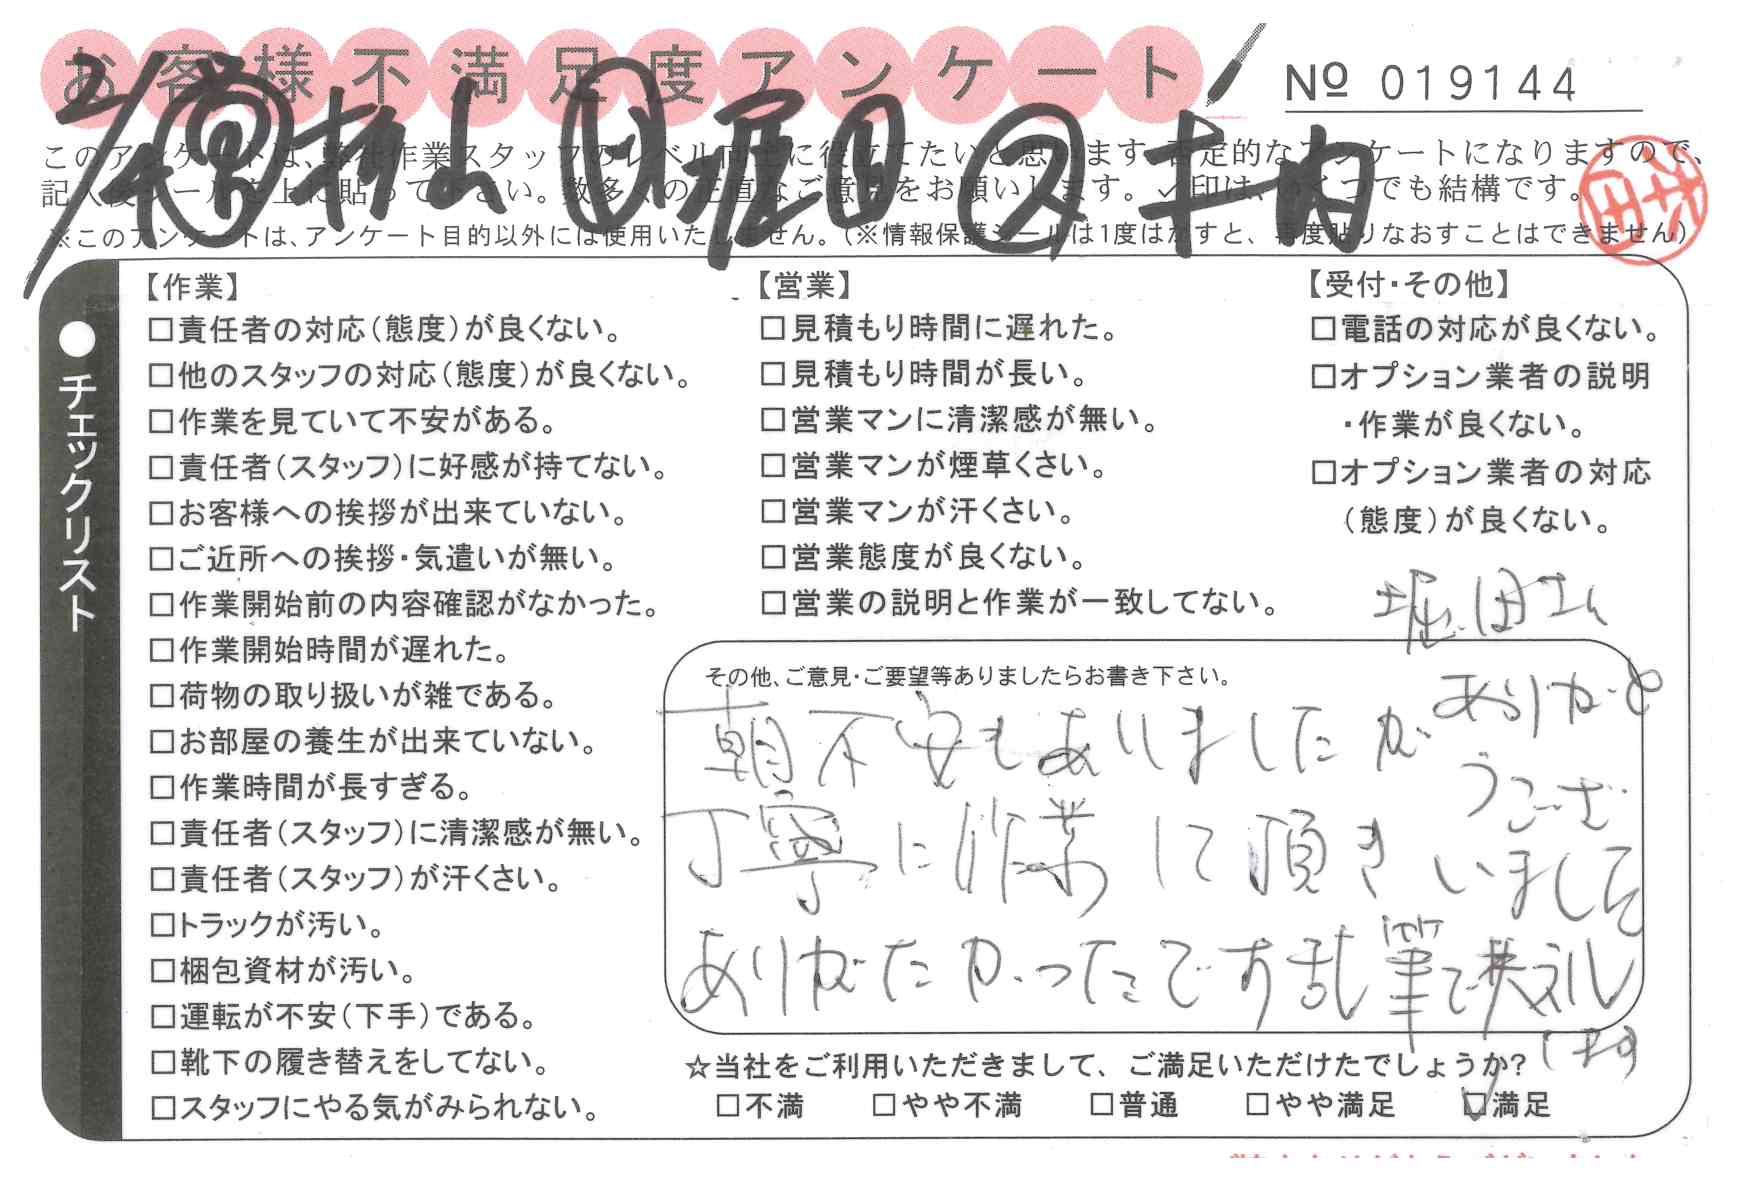 お客様不満足度アンケート
№ 019144
杉山 堀田 竹内
このアンケートは、弊社作業スタッフのレベル向上に役立てたいと思います。否定的なアンケートになりますので、
記入後シールを上に貼って下さい。数多くの正直なご意見をお願いします。✓印は、いくつでも結構です。
※このアンケートは、アンケート目的以外には使用いたしません。(※情報保護シールは1度はがすと、再度貼りなおすことはできません)
●チェックリスト
【作業】
□責任者の対応(態度)が良くない。
□他のスタッフの対応(態度)が良くない。
□作業を見ていて不安がある。
□責任者(スタッフ)に好感が持てない。
□お客様への挨拶が出来ていない。
□ご近所への挨拶・気遣いが無い。
□作業開始前の内容確認がなかった。
□作業開始時間が遅れた。
□荷物の取り扱いが雑である。
□お部屋の養生が出来ていない。
□作業時間が長すぎる。
□責任者(スタッフ)に清潔感が無い。
□責任者(スタッフ)が汗くさい。
□トラックが汚い。
□梱包資材が汚い。
□運転が不安(下手)である。
□靴下の履き替えをしてない。
□スタッフにやる気がみられない。
【営業】
□見積もり時間に遅れた。
□見積もり時間が長い。
□営業マンに清潔感が無い。
□営業マンが煙草くさい。
□営業マンが汗くさい。
□営業態度が良くない。
□営業の説明と作業が一致してない。
【受付・その他】
□電話の対応が良くない。
□オプション業者の説明
・作業が良くない。
□オプション業者の対応
(態度)が良くない。
その他、ご意見・ご要望等ありましたらお書き下さい。
朝不安もありましたが
丁寧に作業して頂き
ありがたかったです乱筆で失礼
します
堀田さん
ありがと
うござ
いました
☆当社をご利用いただきまして、ご満足いただけたでしょうか?
□不満 □やや不満 □普通 □やや満足 ☑満足